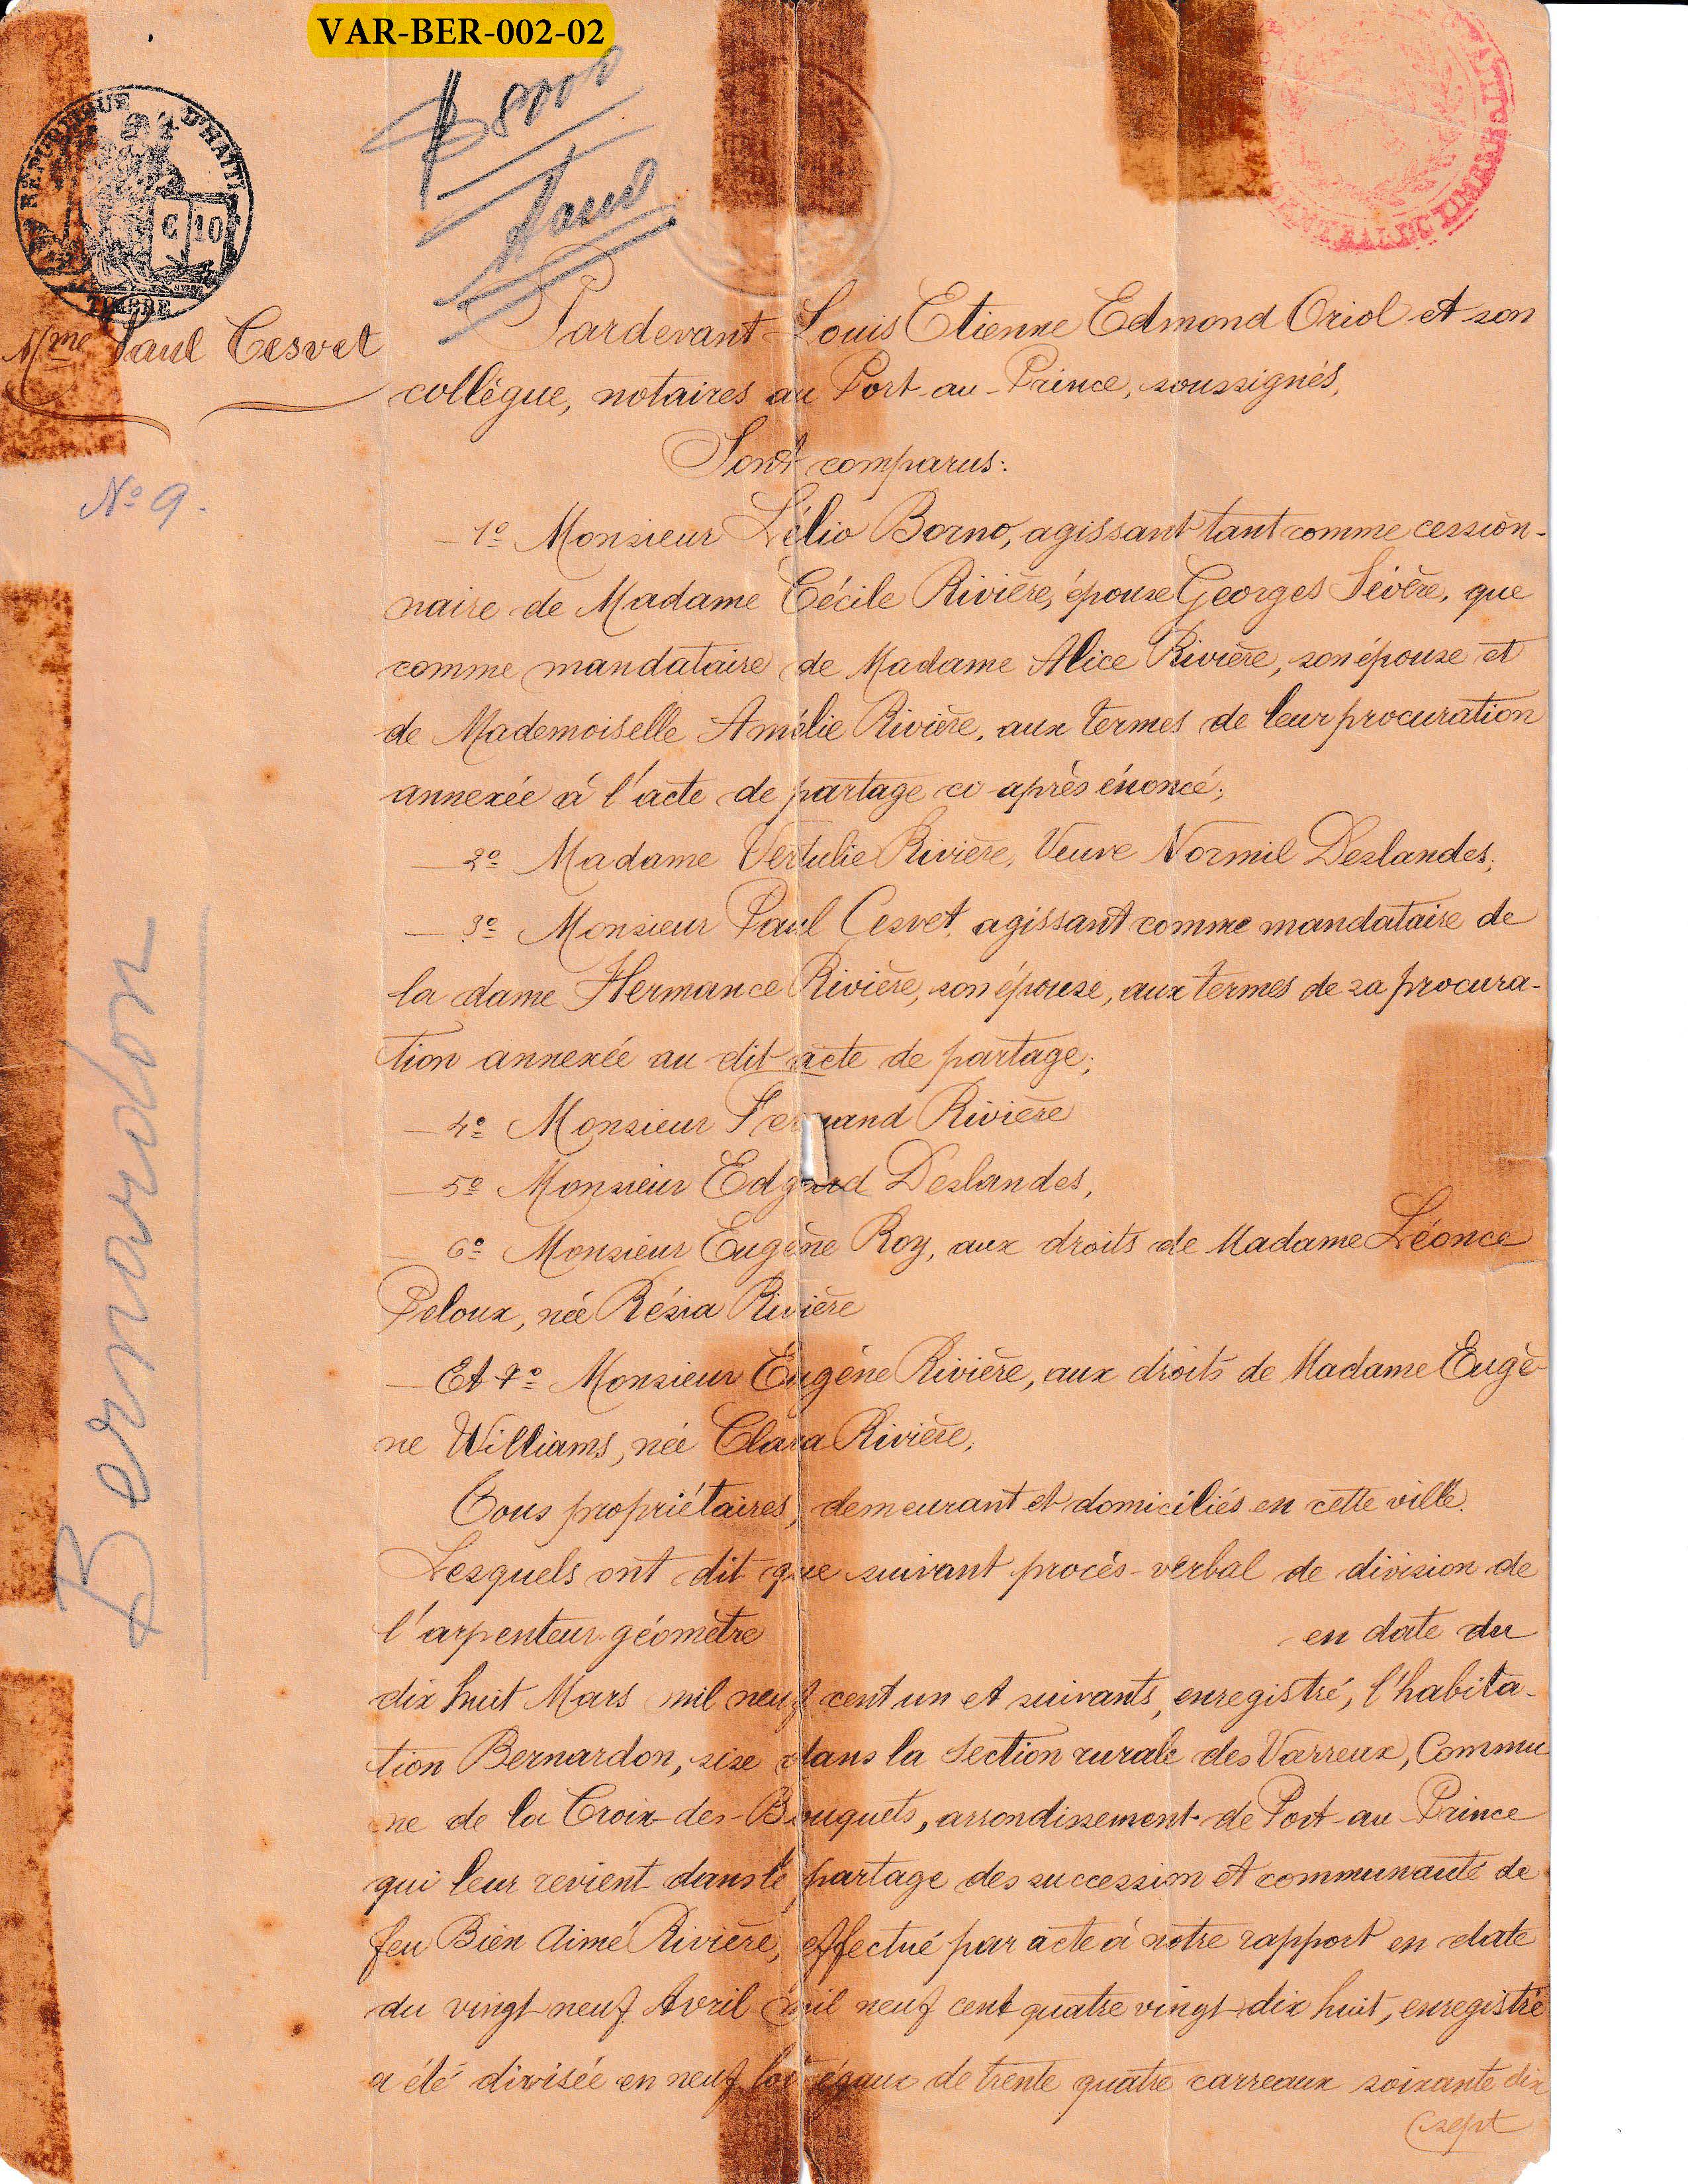 VAR-BER-002-02
RÉPUBLIQUE D'HAÏTI
C 10
TIMBRE
8000
Mme Paul Cesvet
Pardevant Louis Etienne Edmond Oriol et son
collègue, notaires au Port-au-Prince, soussignés,
Sont comparus:
No 9.
— 1º Monsieur Lélio Borno, agissant tant comme cession-
naire de Madame Cécile Rivière, épouse Georges Sévère, que
comme mandataire de Madame Alice Rivière, son épouse et
de Mademoiselle Amélie Rivière, aux termes de leur procuration
annexée à l'acte de partage ci-après énoncé;
— 2º Madame Vertulie Rivière, Veuve Normil Deslandes;
— 3º Monsieur Paul Cesvet, agissant comme mandataire de
la dame Hermance Rivière, son épouse, aux termes de sa procura-
tion annexée au dit acte de partage;
— 4º Monsieur Fernand Rivière
— 5º Monsieur Edgard Deslandes,
6º Monsieur Eugène Roy, aux droits de Madame Léonce
Peloux, née Résia Rivière
— Et 7º Monsieur Eugène Rivière, aux droits de Madame Eugè-
ne Williams, née Clara Rivière,
Tous propriétaires, demeurant et domiciliés en cette ville.
Lesquels ont dit que suivant procès-verbal de division de
l'arpenteur-géomètre en date du
dix huit Mars mil neuf cent un et suivants, enregistré, l'habita-
tion Bernardon, sise dans la Section rurale des Varreux, Commu
ne de la Croix-des-Bouquets, arrondissement de Port-au-Prince
qui leur revient dans le partage des succession et communauté de
feu Bien Aimé Rivière, effectué par acte à notre rapport en date
du vingt neuf Avril mil neuf cent quatre vingt dix huit, enregistré
a été divisée en neuf lots égaux de trente quatre carreaux soixante dix
sept
Bernardon